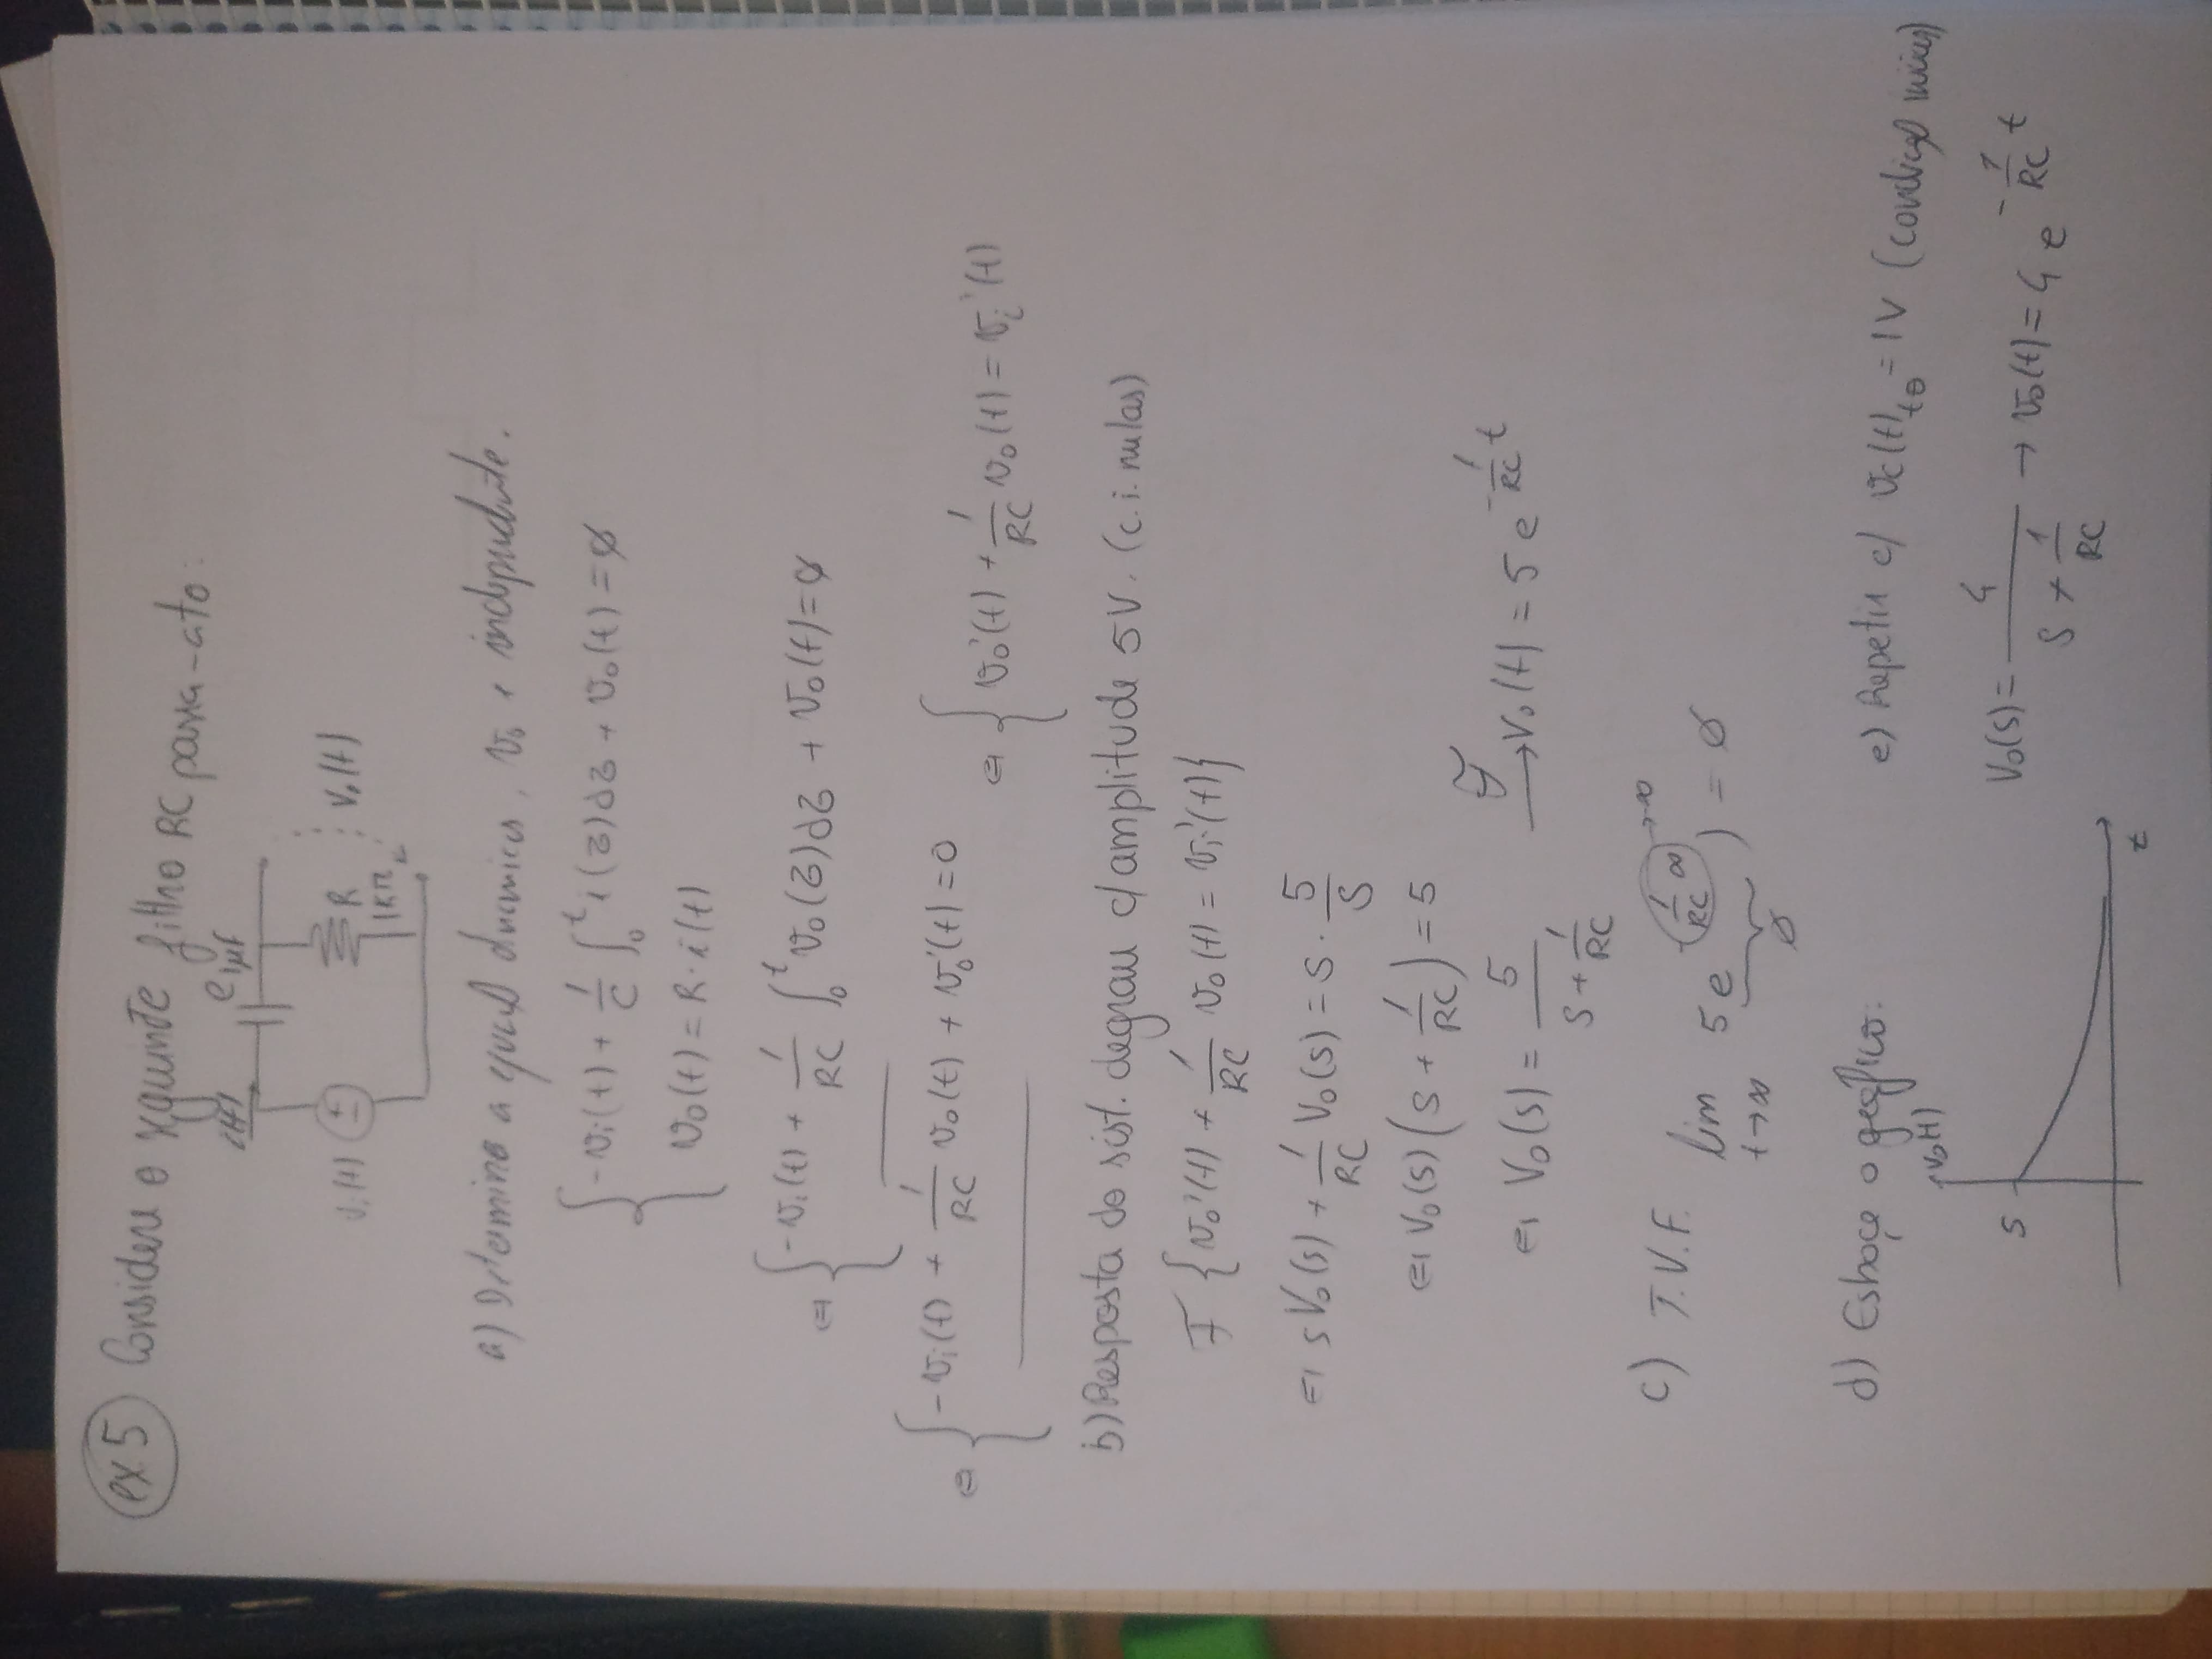 ex.5 Considere o seguinte filtro RC passa-ato:
i(t)
C 1μF
vi(t) + - R 1KΩ Vo(t)
a) Determine a equação dinamica, vo e independente.
{ -vi(t) + 1/C ∫₀ᵗ i(τ)dτ + vo(t) = ∅
vo(t) = R·i(t)
⇔ { -vi(t) + 1/RC ∫₀ᵗ vo(τ)dτ + vo(t) = ∅
⇔ { -vi(t) + 1/RC vo(t) + vo'(t) = 0 ⇔ { vo'(t) + 1/RC vo(t) = vi'(t)
b) Resposta do sist. degrau c/ amplitude 5V. (c.i. nulas)
F { vo'(t) + 1/RC vo(t) = vi'(t) }
⇔ sVo(s) + 1/RC Vo(s) = s · 5/s
⇔ Vo(s) (s + 1/RC) = 5
⇔ Vo(s) = 5/(s + 1/RC) → Vo(t) = 5 e^(-1/RC t)
c) T.V.F. lim t→∞ 5e^(-1/RC ∞) →∞ ) = ∅
∅
d) Esboçe o gráfico.
vo(t)
5
t
e) Repetir c/ vc(t) t0 = 1V (condição iniciais)
Vo(s) = 4/(s + 1/RC) → vo(t) = 4 e^(-1/RC t)